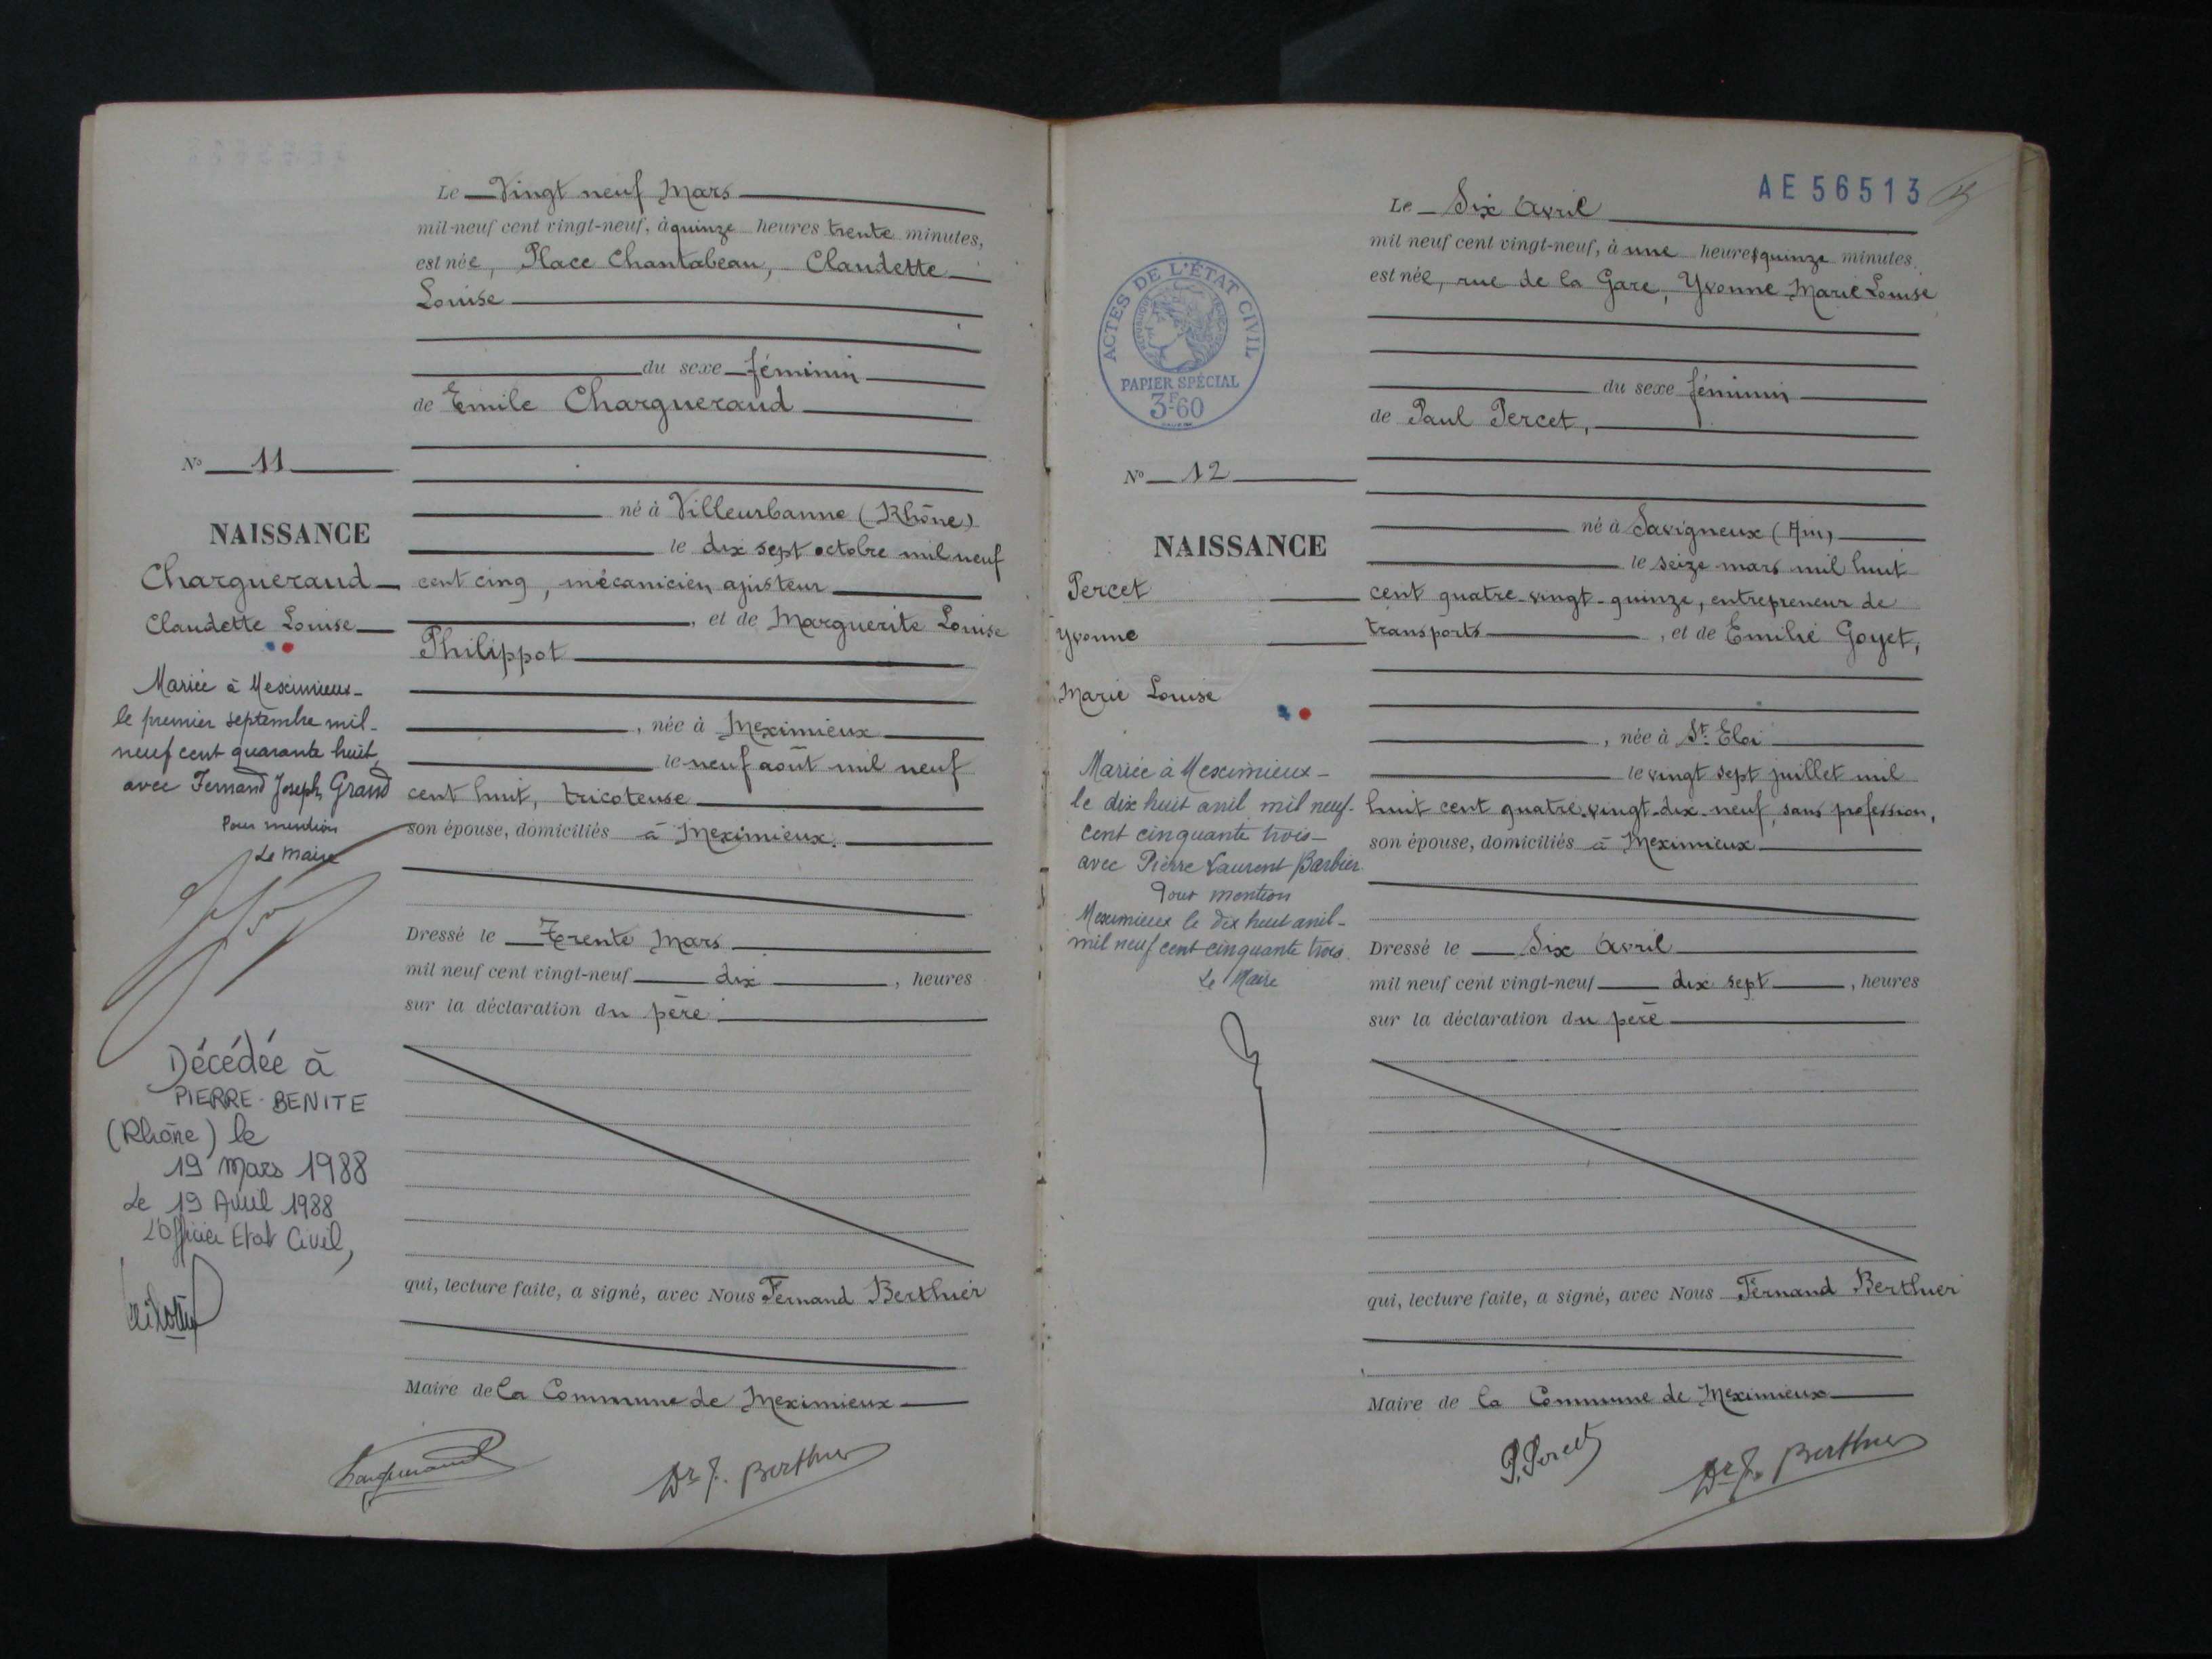 Le Vingt neuf Mars
mil-neuf cent vingt-neuf, à quinze heures trente minutes,
est née, Place Chantabeau, Claudette
Louise
du sexe féminin
de Emile Chargueraud
N° 11
né à Villeurbanne (Rhône)
NAISSANCE
le dix sept octobre mil neuf
Chargueraud
cent cinq, mécanicien ajusteur
Claudette Louise
, et de Marguerite Louise
Philippot
Mariée à Meximieux
le premier septembre mil
neuf cent quarante huit
avec Fernand Joseph Grand
Pour mention
Le Maire
, née à Meximieux
le neuf août mil neuf
cent huit, tricoteuse
son épouse, domiciliés à Meximieux.
Dressé le Trente Mars
mil neuf cent vingt-neuf dix, heures
sur la déclaration du père
Décédée à
PIERRE-BENITE
(Rhône) le
19 Mars 1988
Le 19 Avril 1988
L'Officier Etat Civil,
qui, lecture faite, a signé, avec Nous Fernand Berthier
Maire de la Commune de Meximieux
Chargueraud
Dr F. Berthier
AE 56513
Le Six Avril
mil neuf cent vingt-neuf, à une heures quinze minutes
est née, rue de la Gare, Yvonne Marie Louise
ACTES DE L'ÉTAT CIVIL
PAPIER SPÉCIAL
3F60
du sexe féminin
de Paul Percet,
N° 12
né à Savigneux (Ain)
NAISSANCE
le seize mars mil huit
Percet
cent quatre-vingt-quinze, entrepreneur de
Yvonne
transports, et de Emilie Goyet,
Marie Louise
, née à St. Eloi
le vingt sept juillet mil
huit cent quatre-vingt-dix-neuf, sans profession,
son épouse, domiciliés à Meximieux
Mariée à Meximieux
le dix huit avril mil neuf
cent cinquante trois
avec Pierre Laurent Barbier
Pour mention
Meximieux le dix huit avril
mil neuf cent cinquante trois.
Le Maire
Dressé le Six Avril
mil neuf cent vingt-neuf dix sept, heures
sur la déclaration du père
qui, lecture faite, a signé, avec Nous Fernand Berthier
Maire de la Commune de Meximieux
P. Percet
Dr F. Berthier